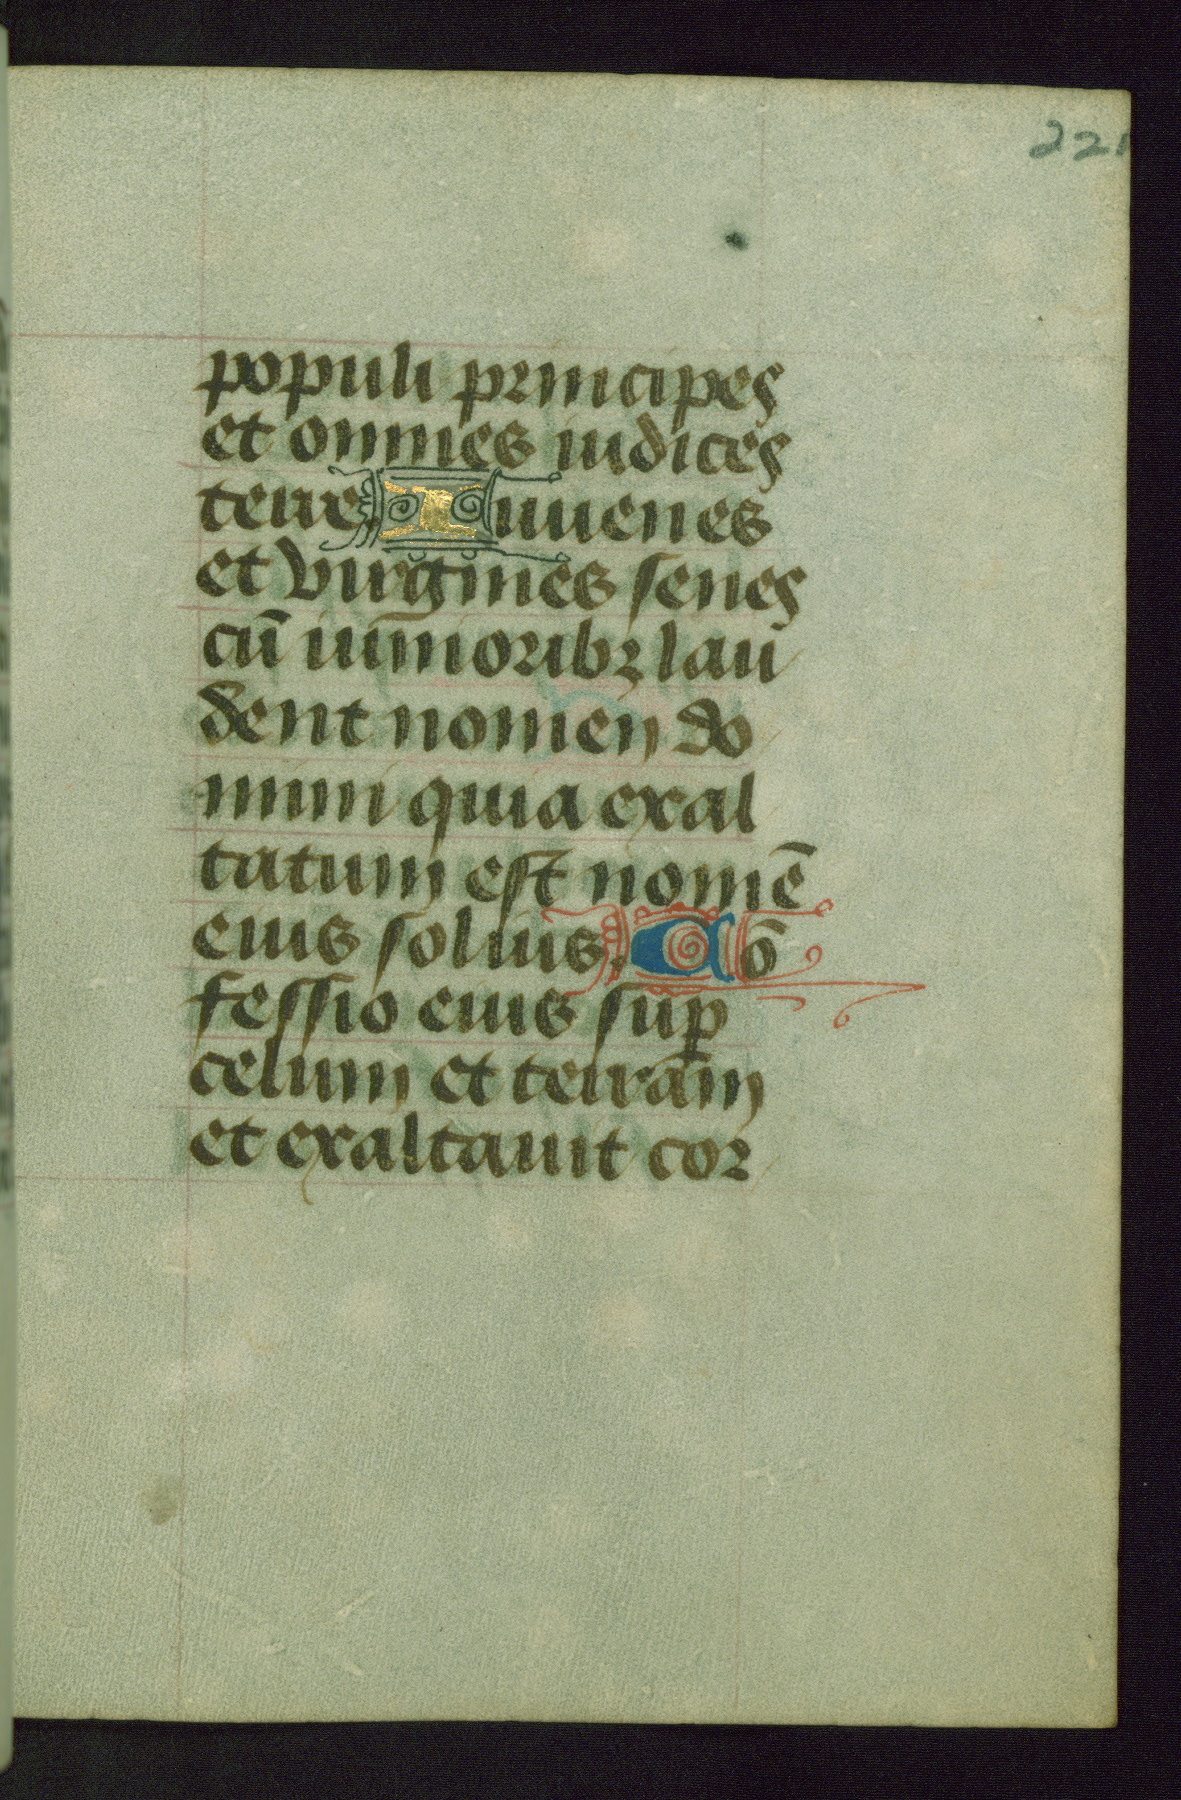 221
populi principes
et omnes iudices
terre. Iuuenes
et virgines senes
cū iunioribꝫ lau
dent nomen do
mini quia exal
tatum est nomē
eius solius. Cō
fessio eius suꝑ
celum et terram
et exaltauit cor